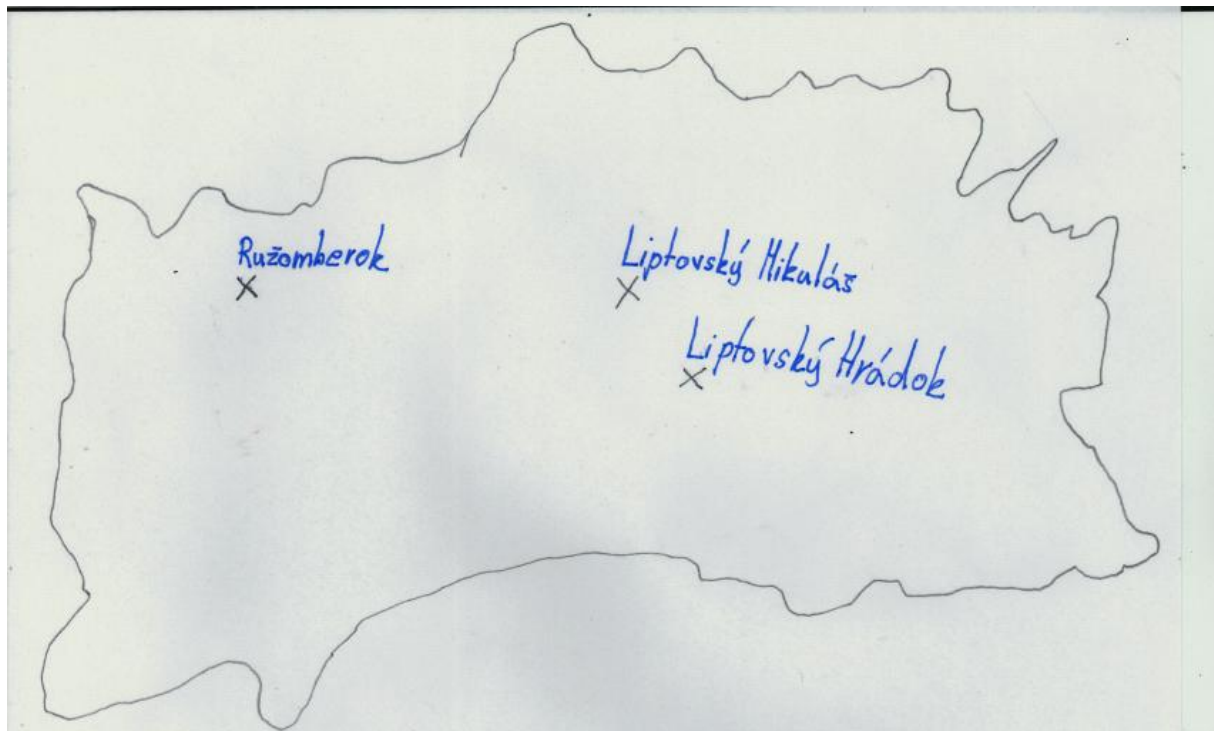 Ružomberok
Liptovský Mikuláš
Liptovský Hrádok